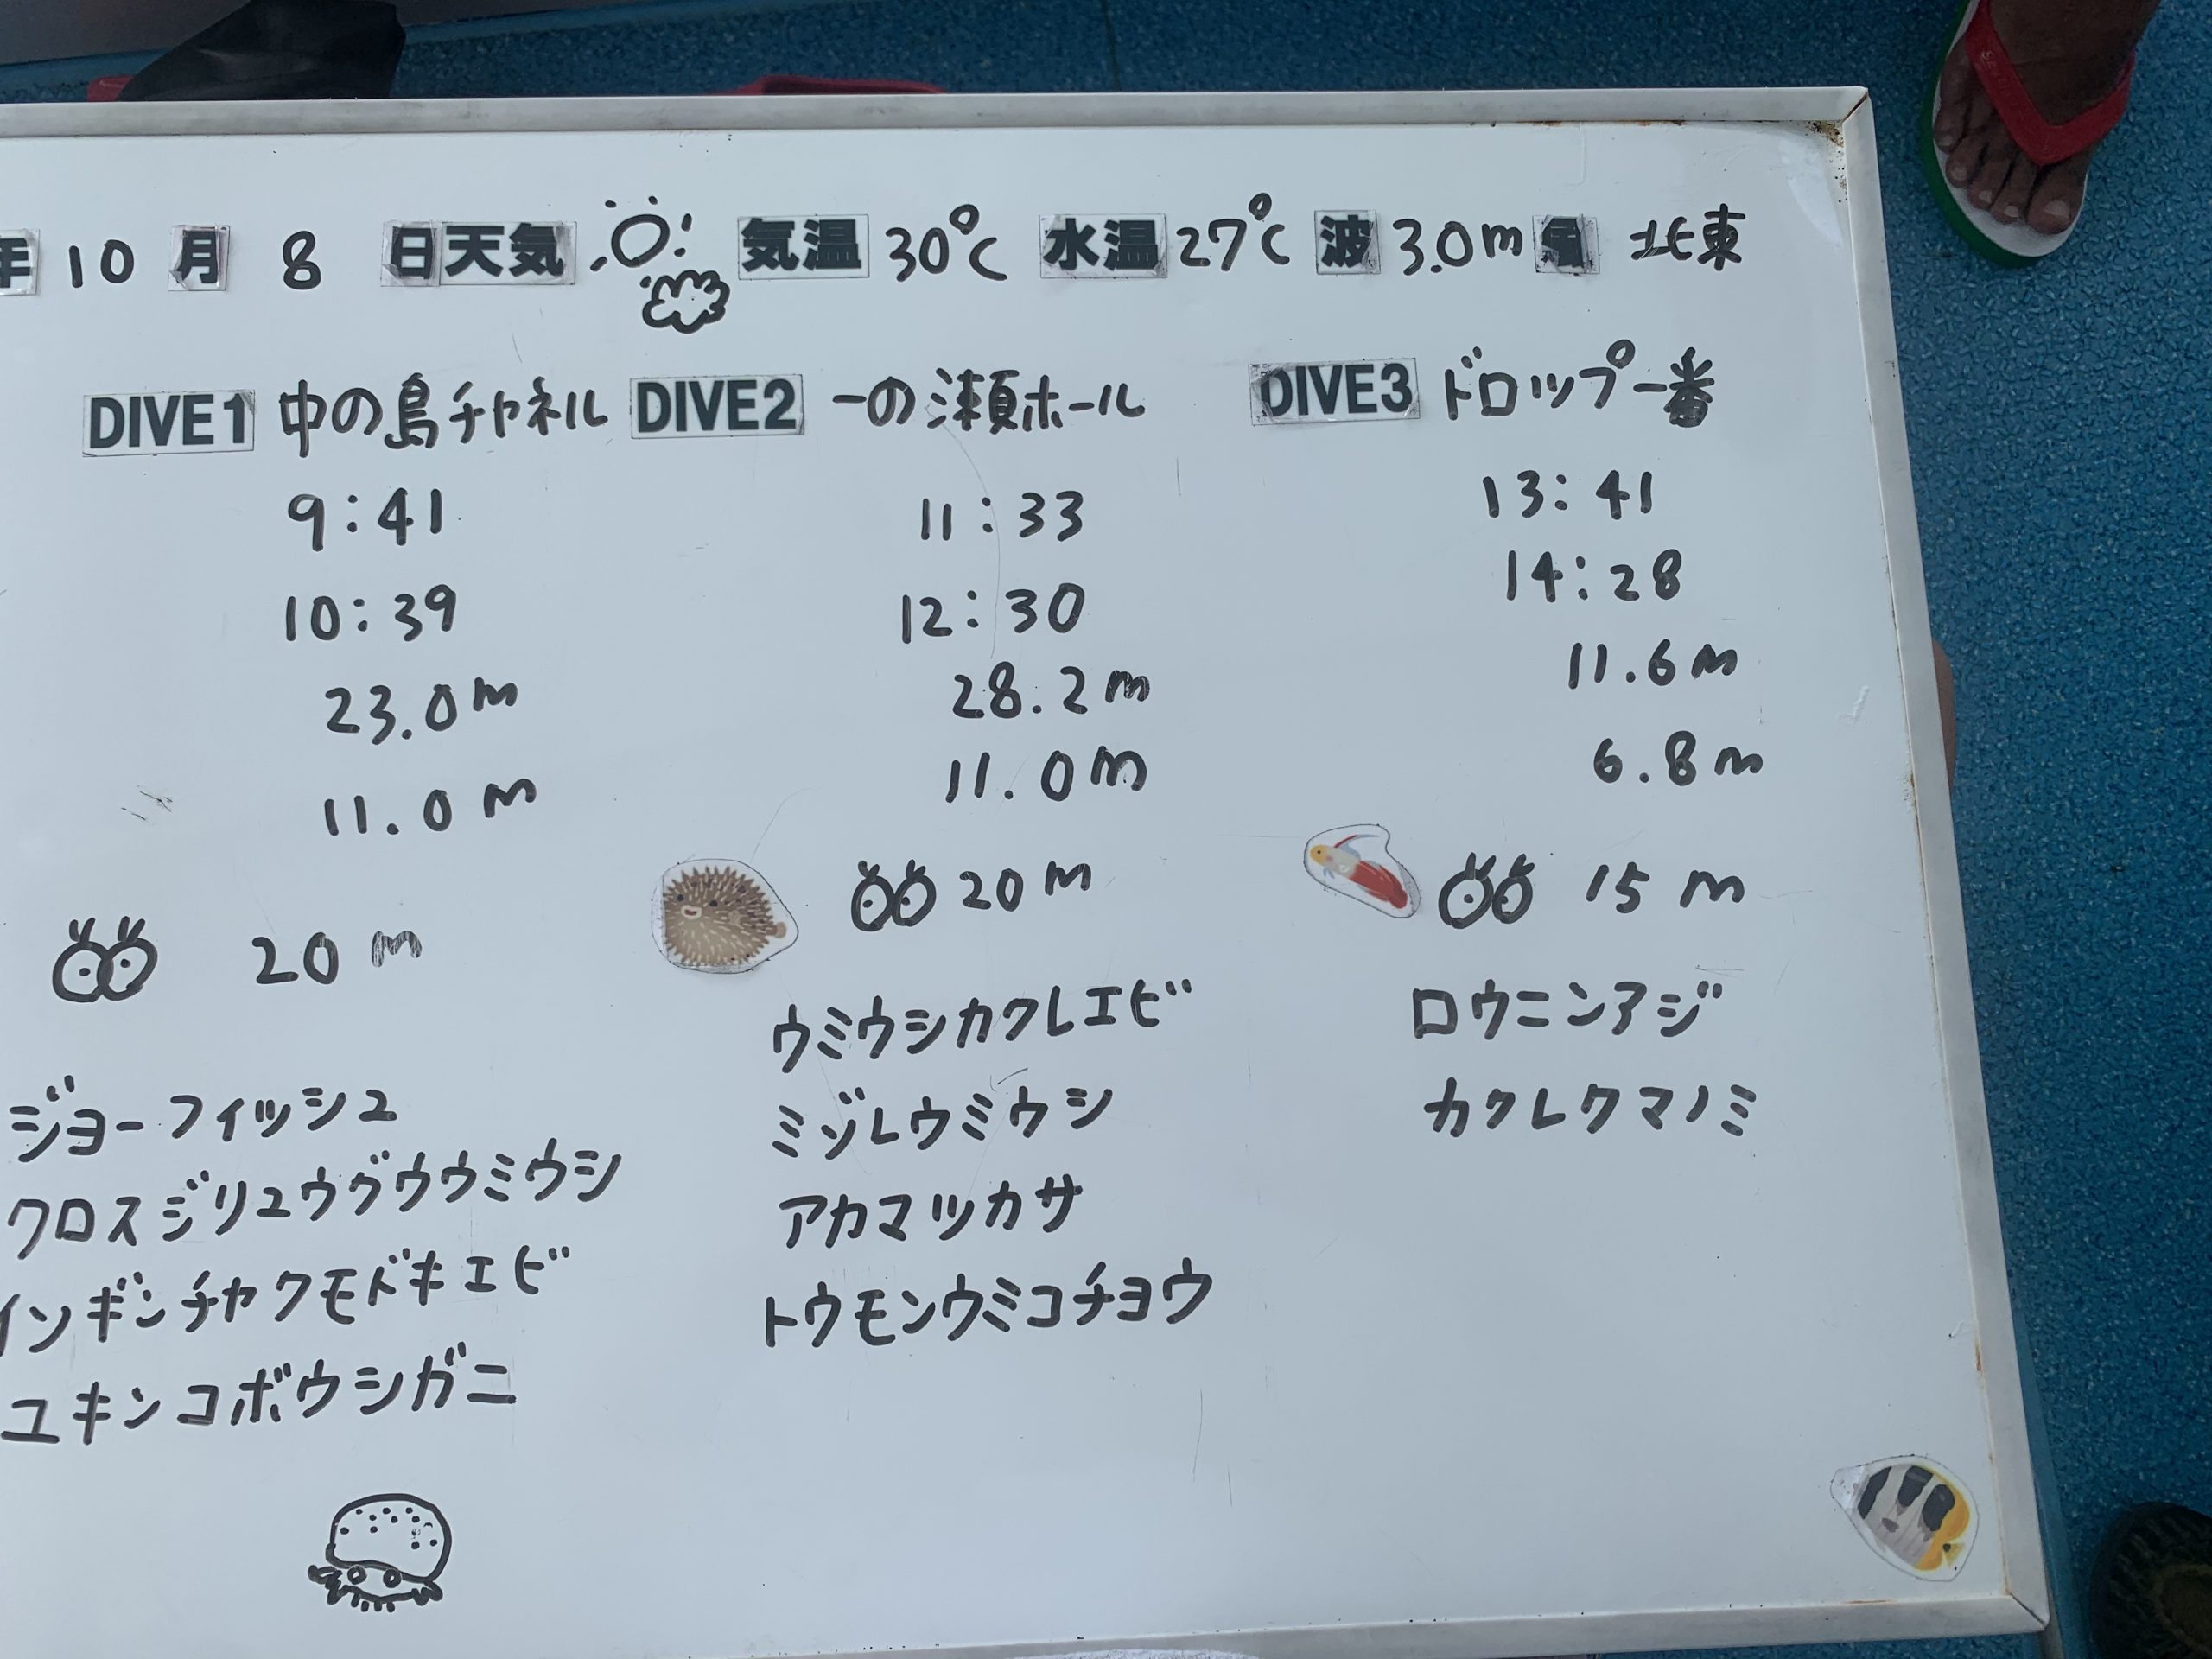 年 10 月 8 日 天気 気温 30℃ 水温 27℃ 波 3.0m 風 北東
DIVE1 中の島チャネル
9:41
10:39
23.0m
11.0m
20m
ジョーフィッシュ
クロスジリュウグウウミウシ
イソギンチャクモドキエビ
ユキンコボウシガニ
DIVE2 一の瀬ホール
11:33
12:30
28.2m
11.0m
20m
ウミウシカクレエビ
ミゾレウミウシ
アカマツカサ
トウモンウミコチョウ
DIVE3 ドロップ一番
13:41
14:28
11.6m
6.8m
15m
ロウニンアジ
カクレクマノミ